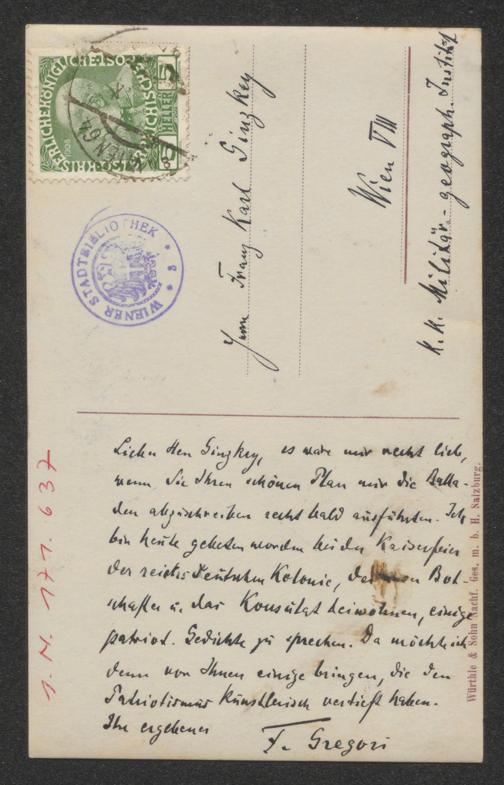 KAISERLICHE KÖNIGLICHE
ÖSTERREICHISCHE
5 HELLER 5
WIEN 64
WIENER STADTBIBLIOTHEK
* 3 *
Herrn Franz Karl Ginzkey
Wien VIII
K. K. Militär-geograph. Institut
Lieber Herr Ginzkey, es wäre mir recht lieb,
wenn Sie Ihren schönen Plan mir die Balla-
den abzuschreiben recht bald ausführten. Ich
bin heute gebeten worden bei der Kaiserfeier
der reichsdeutschen Kolonie, der Bot-
schafter u. das Konsulat beiwohnen, einige
patriot. Gedichte zu sprechen. Da möchte ich
denn von Ihnen einige bringen, die den
Patriotismus künstlerisch vertieft haben.
Ihr ergebener
F. Gregori
I. N. 171.637
Würthle & Sohn Nachf. Ges. m. b. H. Salzburg.